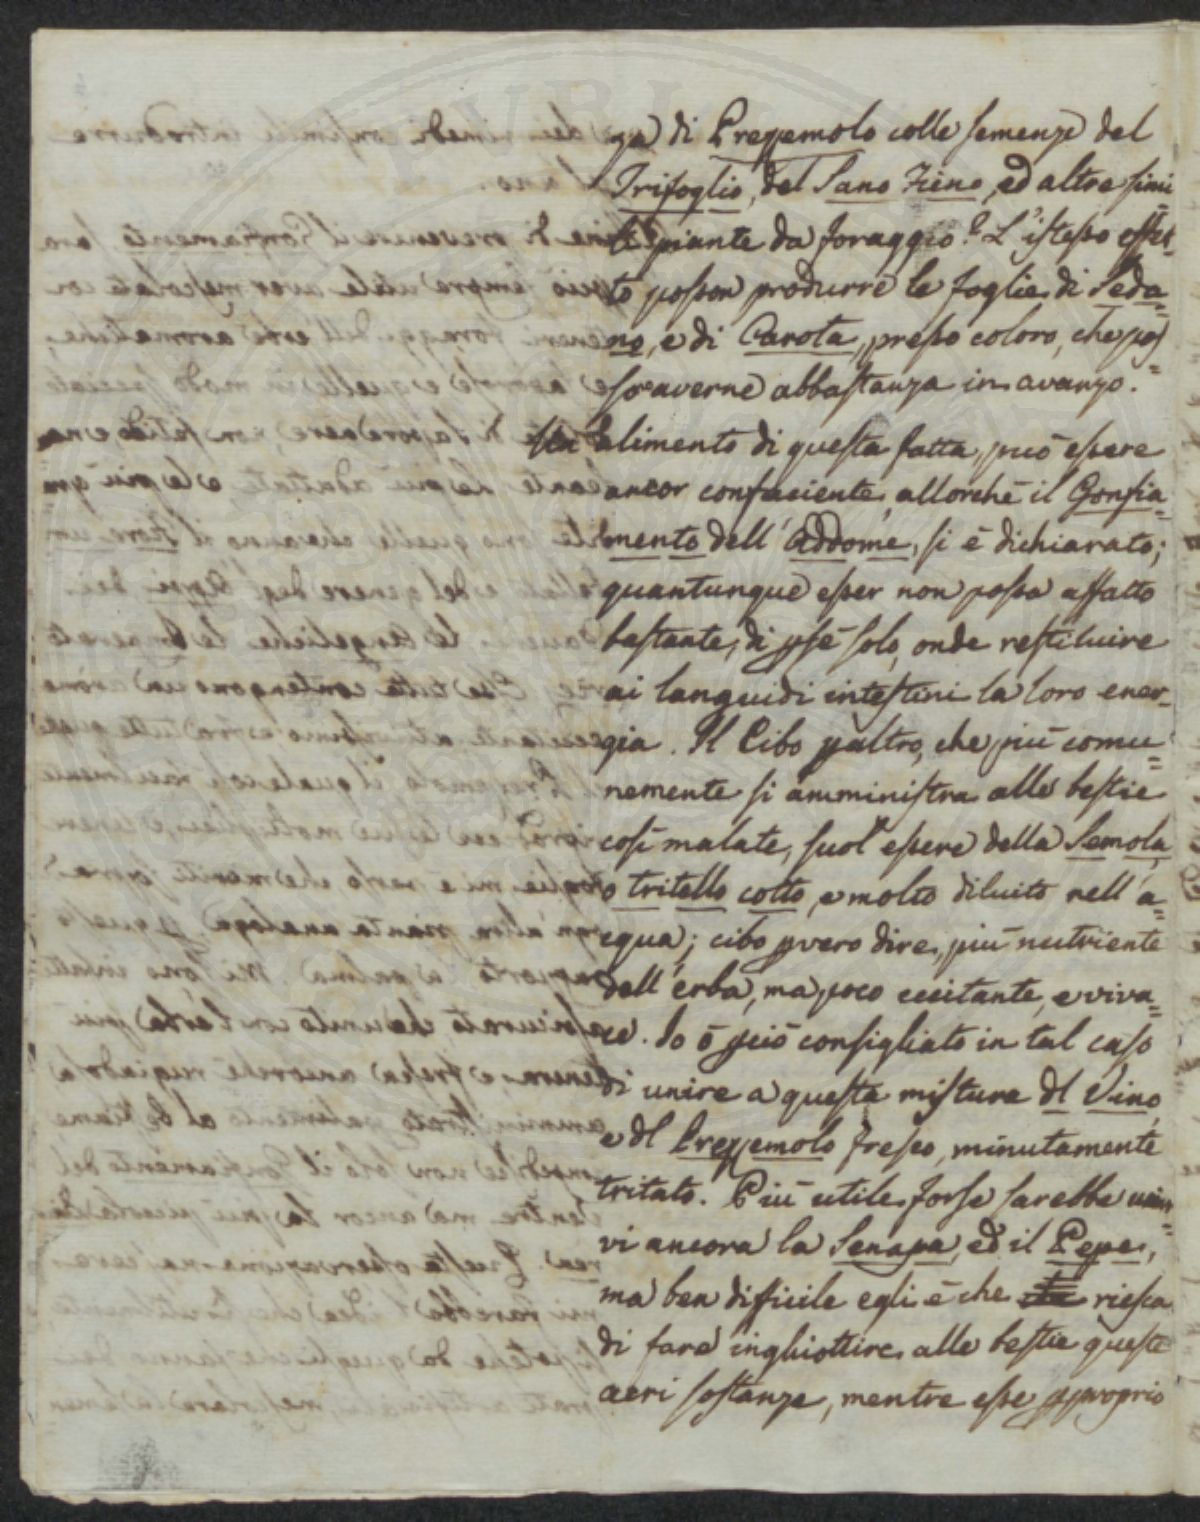 za di Prezzemolo colle semenze del
Trifoglio, del Sano Fieno, ed altre simi
li piante da foraggio? L'istesso effet-
to posson produrre le foglie di Seda=
no, e di Carota, presso coloro, che pos=
son averne abbastanza in avanzo.
Un alimento di questa fatta, può essere
ancor confaciente, allorchè il Gonfia=
mento dell'Addome, si è dichiarato;
quantunque esser non possa affatto
bastante, di per sè solo, onde restituire
ai languidi intestini la loro ener=
gia. Il Cibo per altro, che più comu=
nemente si amministra alle bestie
così malate, suol essere della Semola,
o tritello cotto, e molto diluito nell'a=
cqua; cibo per vero dire, più nutriente
dell'erba, ma poco eccitante, e viva=
ce. Io ò perciò consigliato in tal caso
di unire a questa mistura del Vino,
e del Prezzemolo fresco, minutamente
tritato. Più utile forse sarebbe unir=
vi ancora la Senapa, ed il Pepe,
ma ben difficile egli è che riesca
di fare inghiottire alle bestie queste
acri sostanze, mentre esse per proprio